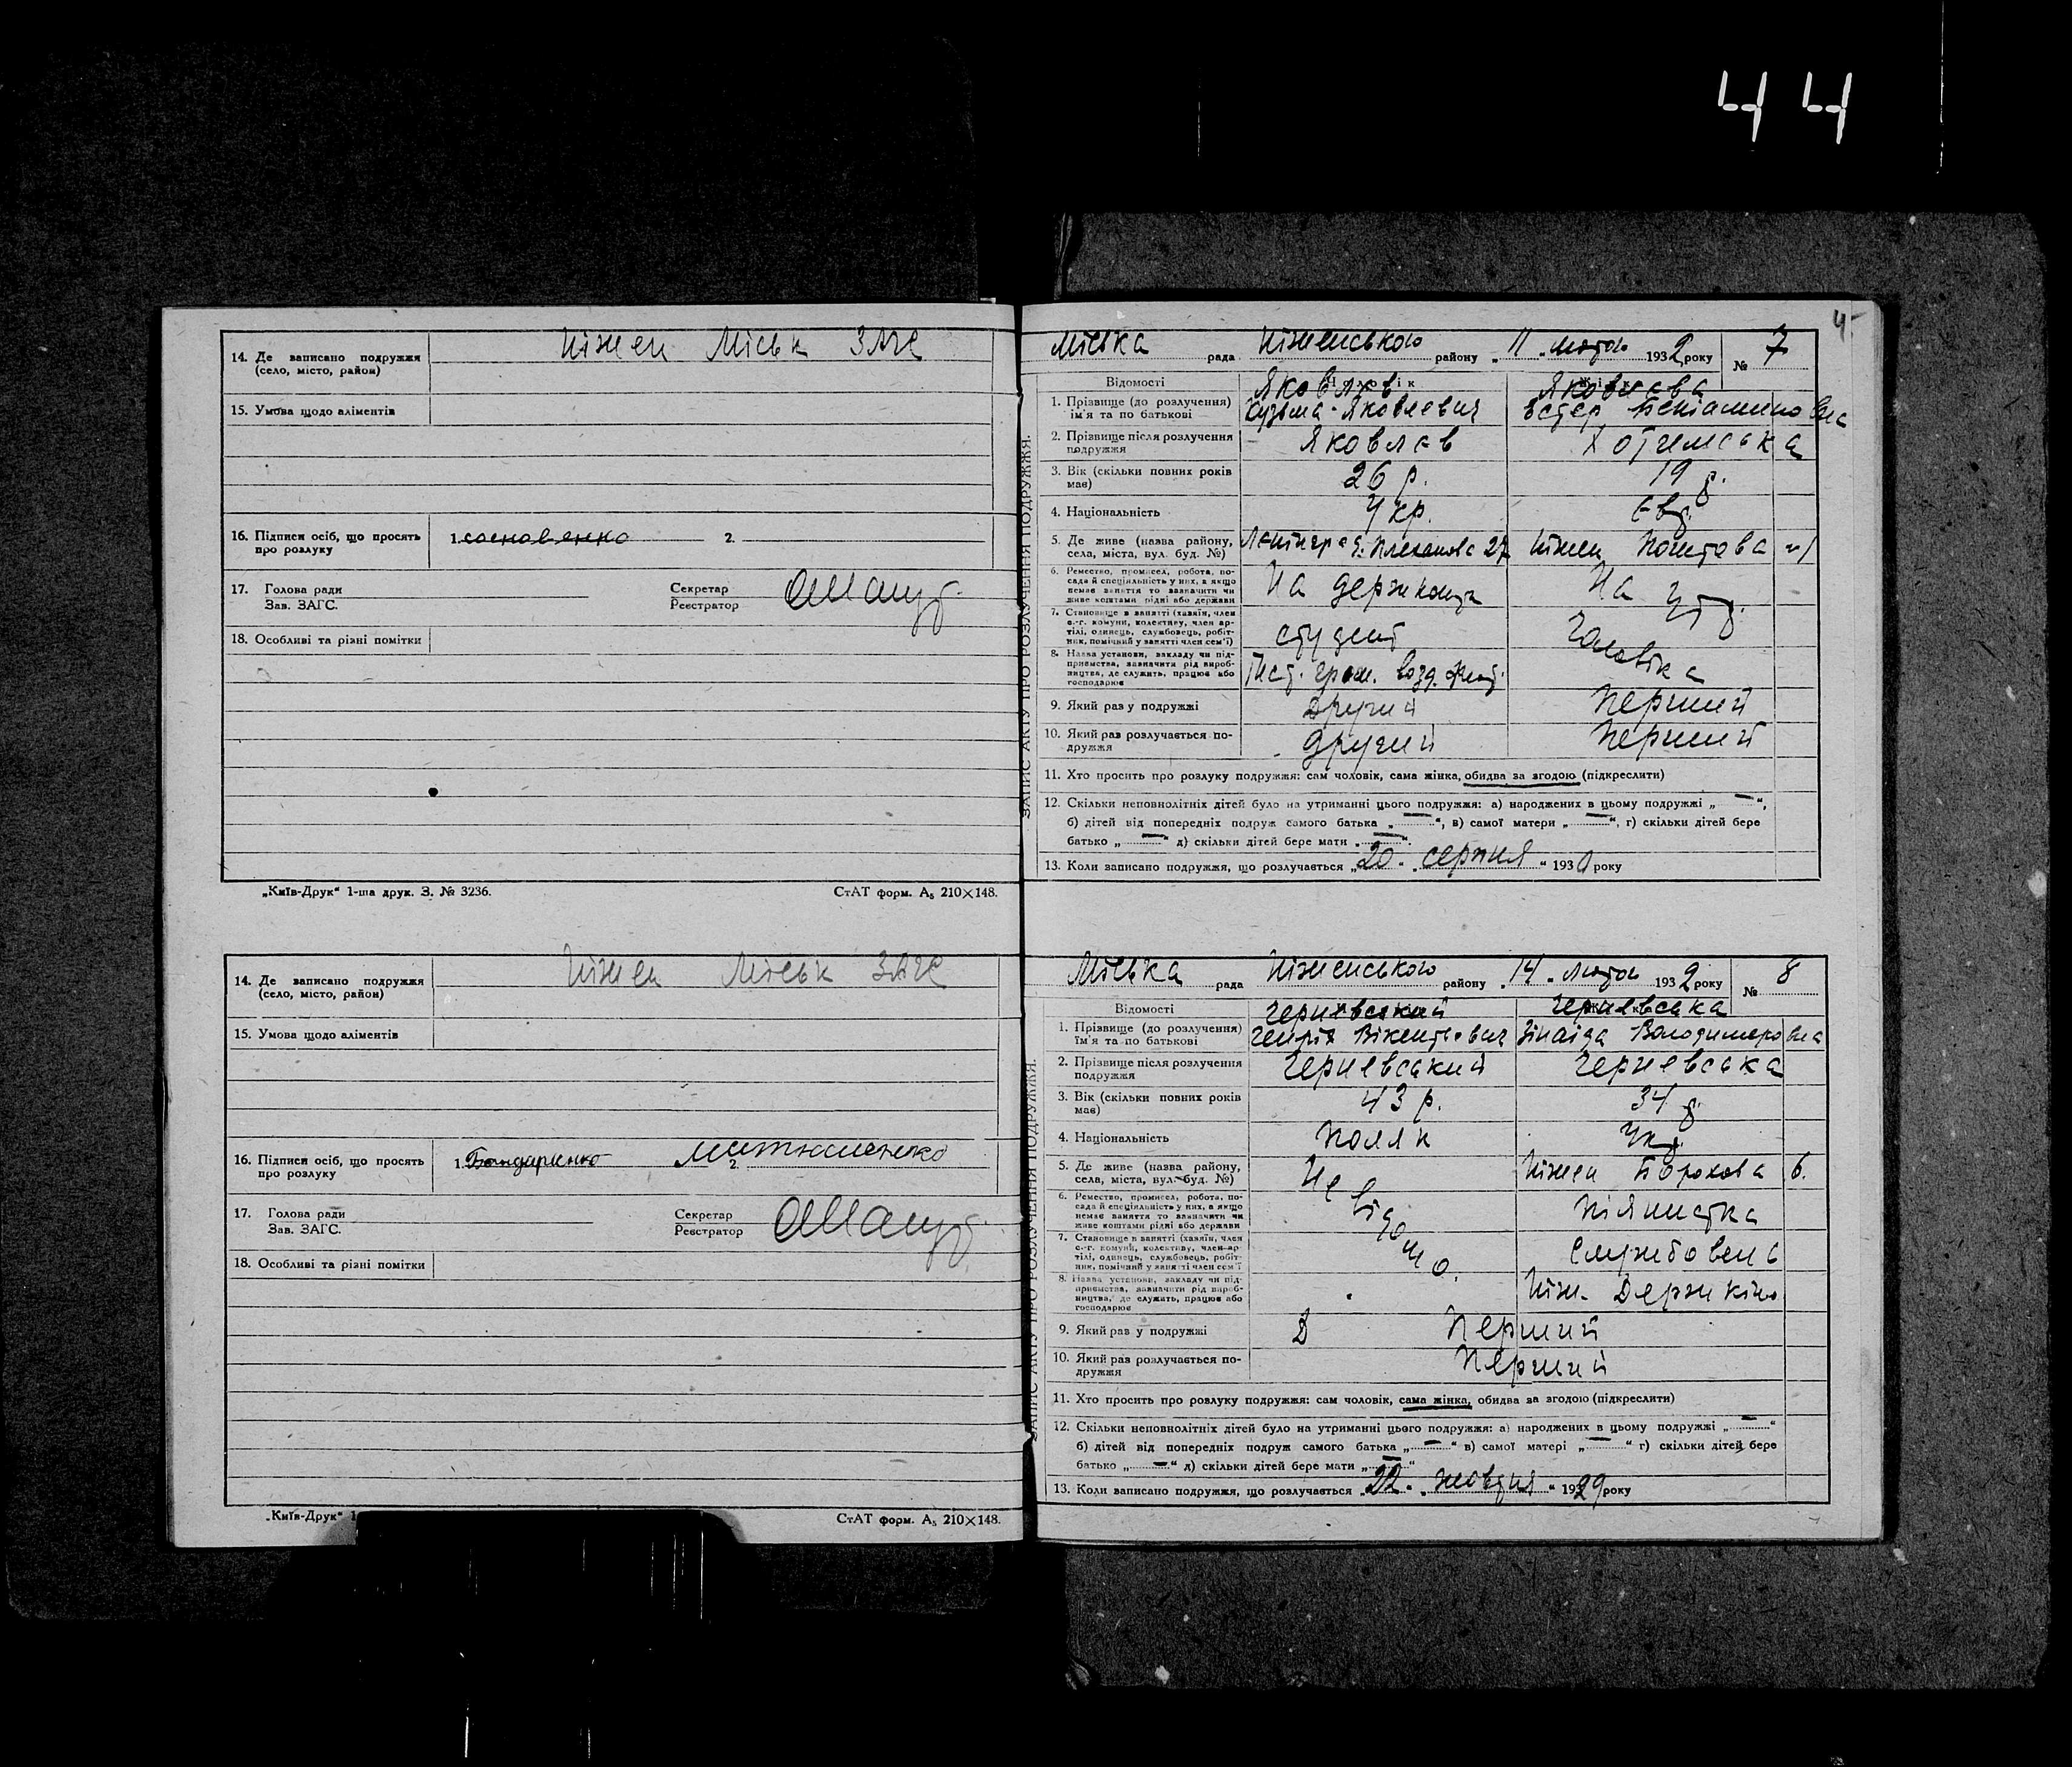 44
14. Де записано подружжя
(село, місто, район)
Ніжен Міськ ЗАГС
15. Умова щодо аліментів
16. Підписи осіб, що просять
про розлуку
1.
2.
17. Голова ради
Зав. ЗАГС.
Секретар
Реєстратор
18. Особливі та різні помітки
„Київ-Друк“ 1-ша друк. З. № 3236.
СтАТ форм. А5 210×148.
14. Де записано подружжя
(село, місто, район)
Ніжен Міськ ЗАГС
15. Умова щодо аліментів
16. Підписи осіб, що просять
про розлуку
1. Бондаренко
2.
17. Голова ради
Зав. ЗАГС.
Секретар
Реєстратор
18. Особливі та різні помітки
„Київ-Друк“ 1
СтАТ форм. А5 210×148.
4
ЗАПИС АКТУ ПРО РОЗЛУЧЕННЯ ПОДРУЖЖЯ.
Міська рада Ніженською району „11„ лютого 1932 року № 7
Відомості
Чоловік
1. Прізвище (до розлучення)
ім'я та по батькові
Яковлєв
Кузьма Яковлевич
Яковлева
Естер Беніаминовна
2. Прізвище після розлучення
подружжя
Яковлєв
Хотимська
3. Вік (скільки повних років
має)
26 р.
19 р.
4. Національність
Укр.
Євр.
5. Де живе (назва району,
села, міста, вул. буд. №)
Ленінград. Плеханова 27
Ніжен Поштова
6. Ремество, промисел, робота, по-
сада й спеціяльність у них, а якщо
немає заняття то зазначити чи
живе коштами рідні або держави
На держкошта
На утр.
7. Становище в занятті (хазяїн, член
с.-г. комуни, колективу, член ар-
тілі, одинець, службовець, робіт-
ник, помічний у занятті член сем'ї)
студент
Чоловіка
8. Назва установи, закладу чи під-
приємства, зазначити рід вироб-
ництва, де служить, працює або
господарює
Інст. гром. возд. флот.
9. Який раз у подружжі
Другий
Перший
10. Який раз розлучається по-
дружжя
другий
Перший
11. Хто просить про розлуку подружжя: сам чоловік, сама жінка, обидва за згодою (підкреслити)
12. Скільки неповнолітніх дітей було на утриманні цього подружжя: а) народжених в цьому подружжі „ — “,
б) дітей від попередніх подруж самого батька „ — “, в) самої матери „ — “, г) скільки дітей бере
батько „ — “ д) скільки дітей бере мати „ — “.
13. Коли записано подружжя, що розлучається „20„ серпня “ 1930 року
ЗАПИС АКТУ ПРО РОЗЛУЧЕННЯ ПОДРУЖЖЯ.
Міська рада Ніженською району „14„ лютого 1932 року № 8
Відомості
1. Прізвище (до розлучення)
ім'я та по батькові
Черневський
Генріх Вікентьевич
Черневська
Зінаіда Володимеровна
2. Прізвище після розлучення
подружжя
Черневський
Черневська
3. Вік (скільки повних років
має)
43 р.
34 р.
4. Національність
Поляк
Укр.
5. Де живе (назва району,
села, міста, вул. буд. №)
Невідомо.
Ніжен 6.
6. Ремество, промисел, робота, по-
сада й спеціяльність у них, а якщо
немає заняття то зазначити чи
живе коштами рідні або держави
Піянистка
7. Становище в занятті (хазяїн, член
с.-г. комуни, колективу, член ар-
тілі, одинець, службовець, робіт-
ник, помічний у занятті член сем'ї
Службовець
8. Назва установи, закладу чи під-
приємства, зазначити рід вироб-
ництва, де служить, працює або
господарює
Ніж. Держкіно
9. Який раз у подружжі
Перший
10. Який раз розлучається по-
дружжя
Перший
11. Хто просить про розлуку подружжя: сам чоловік, сама жінка, обидва за згодою (підкреслити)
12. Скільки неповнолітніх дітей було на утриманні цього подружжя: а) народжених в цьому подружжі „ — “
б) дітей від попередніх подруж самого батька „ — “ в) самої матері „ — “ г) скільки дітей бере
батько „ — “ д) скільки дітей бере мати „ — “
13. Коли записано подружжя, що розлучається „22„ жовтня “ 1929 року